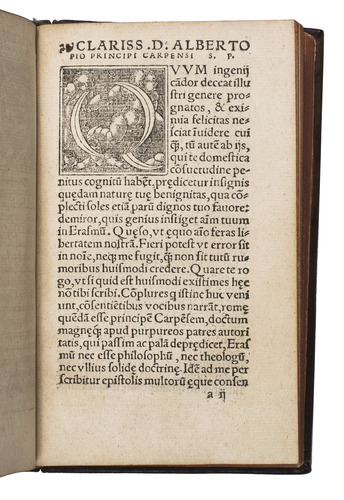 CLARISS .D. ALBERTO
PIO PRINCIPI CARPENSI S. P.
QVVM ingenij
cādor deceat illu
stri genere pro
gnatos, & exi
nia felicitas ne
sciat īuidere cui
q̃, tū autē ab ijs,
qui te domestica
cōsuetudine pe
nitus cognitū habēt, prędicetur insignis
quędam naturę tuę benignitas, qua cō
plecti soles etiā parū dignos tuo fauore:
demiror, quis genius instiget aīm tuum
in Erasmū. Quęso, vt equo aīo feras li
bertatem nostrā. Fieri potest vt error sit
in noīe, necq; me fugit, q̃ non sit tutū ru
moribus huismodi credere. Quare te ro
go, vt si quid est huismodi existimes hęc
nō tibi scribi. Cōplures q istinc huc veni
unt, cōsentiētibus vocibus narrāt, romę
quēdā esse principē Carpēsem, doctum
magnęq; apud purpureos patres autori
tatis, qui passim ac palā deprędicet, Eras
mū nec esse philosophū, nec theologū,
nec vllius solidę doctrinę. Idē ad me per
scribitur epistolis multorū ęque consen
a ij